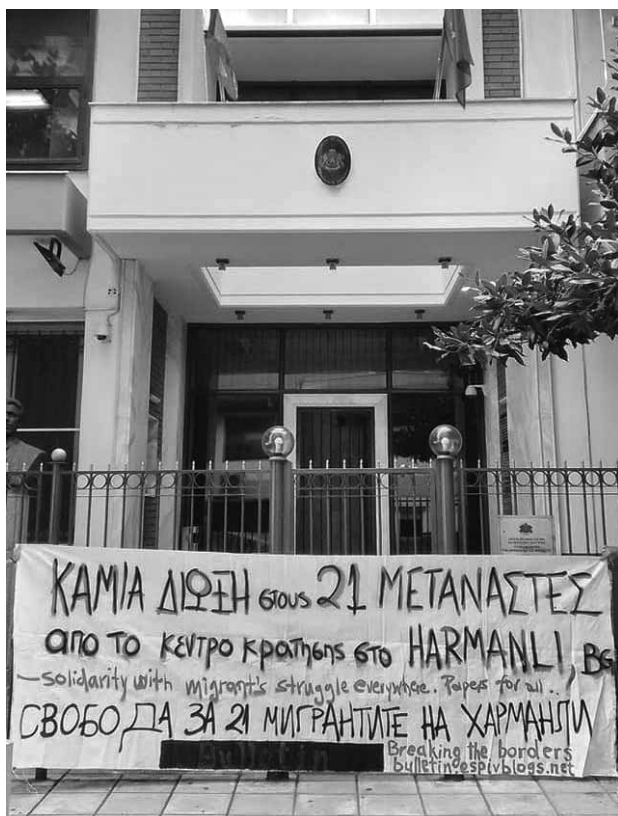 ΚΑΜΙΑ ΔΙΩΞΗ στους 21 ΜΕΤΑΝΑΣΤΕΣ
απο το κεντρο κρατησης στο HARMANLI, BG
- solidarity with migrant's struggle everywhere. Papers for all..
СВОБОДА ЗА 21 МИГРАНТИТЕ НА ХАРМАНЛИ
Bulletin
Breaking the borders
bulletin.espivblogs.net